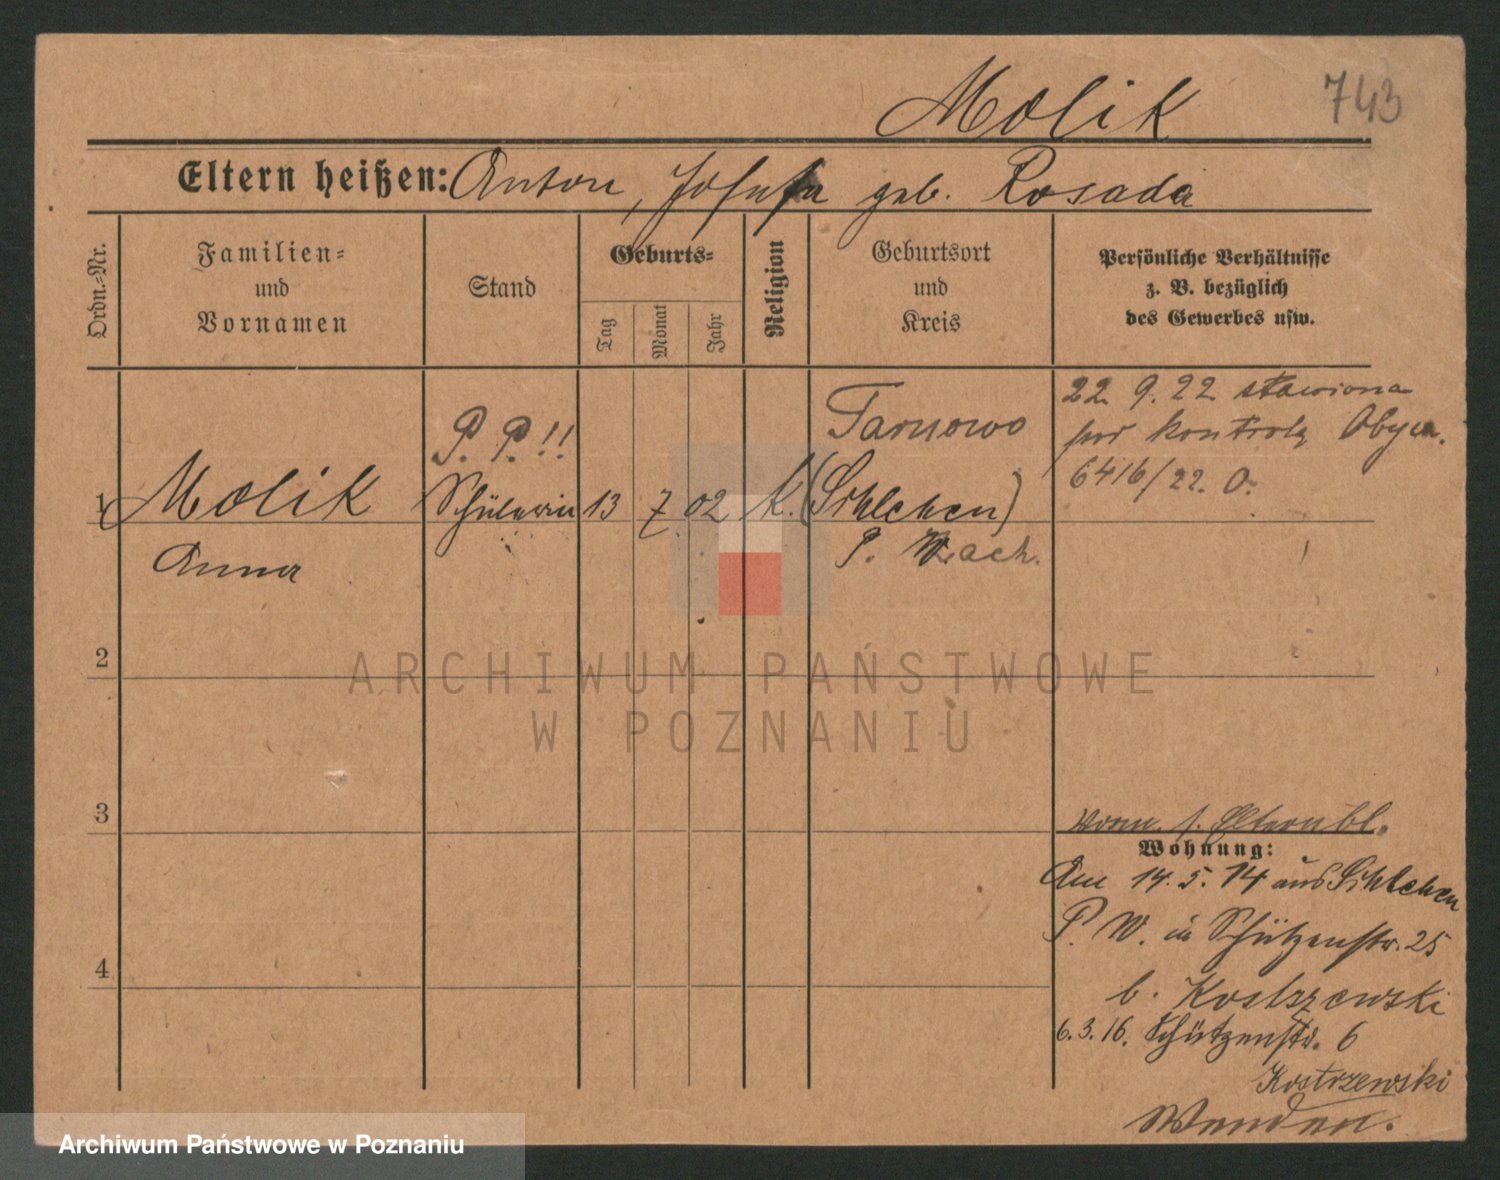 Molik
743
Eltern heißen: Anton, Josefa geb. Rosada
Ordn.=Nr.
Familien=
und
Vornamen
Stand
Geburts=
Tag
Monat
Jahr
Religion
Geburtsort
und
Kreis
Persönliche Verhältnisse
z. B. bezüglich
des Gewerbes usw.
1
Molik
Anna
P. P.!!
Schülerin
13
7.
02
K.
Tarnowo
(Schlehen)
P. W.ach.
22. 9. 22 stawiona
pod kontrolą Obyw.
6416/22. O.
2
3
4
Vorm. s. Elternbl.
Wohnung:
Am 14. 5. 14 aus Schlehen
P. W. in Schützenstr. 25
b. Kostrzewski
6. 3. 16. Schützenstr. 6
Kostrzewski
Wenden.
ARCHIWUM PAŃSTWOWE
W POZNANIU
Archiwum Państwowe w Poznaniu